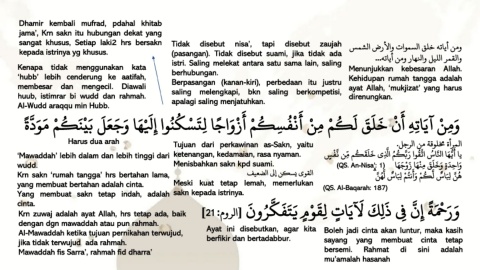 Dhamir kembali mufrad, pdahal khitab
jama', Krn sakn itu hubungan dekat yang
sangat khusus, Setiap laki2 hrs bersakn
kepada istrinya yg khusus.
Kenapa tidak menggunakan kata
'hubb' lebih cenderung ke aatifah,
membesar dan mengecil. Diawali
huub, istimrar bi wudd dan rahmah.
Al-Wudd araqqu min Hubb.
Tidak disebut 'nisa', tapi disebut zaujah
(pasangan). Tidak disebut suami, jika tidak ada
istri. Saling melekat antara satu sama lain, saling
berhubungan.
Berpasangan (kanan-kiri), perbedaan itu justru
saling melengkapi, bkn saling berkompetisi,
apalagi saling menjatuhkan.
ومن آياته خلق السموات والأرض الشمس
والقمر الليل والنهار ومن آياته...
Menunjukkan kebesaran Allah.
Kehidupan rumah tangga adalah
ayat Allah, 'mukjizat' yang harus
direnungkan.
وَمِنْ آيَاتِهِ أَنْ خَلَقَ لَكُمْ مِنْ أَنْفُسِكُمْ أَزْوَاجًا لِتَسْكُنُوا إِلَيْهَا وَجَعَلَ بَيْنَكُمْ مَوَدَّةً
Harus dua arah
'Mawaddah' lebih dalam dan lebih tinggi dari
wudd.
Krn sakn 'rumah tangga' hrs bertahan lama,
yang membuat bertahan adalah cinta.
Yang membuat sakn tetap indah, adalah
cinta.
Krn zuwaj adalah ayat Allah, hrs tetap ada, baik
dengan dgn mawaddah atau pun rahmah.
Al-Mawaddah ketika tujuan pernikahan terwujud,
jika tidak terwujud ada rahmah.
Mawaddah fis Sarra', rahmah fid dharra'
Tujuan dari perkawinan as-Sakn, yaitu
ketenangan, kedamaian, rasa nyaman.
Menisbahkan sakn kpd suami.
القوي يسكن إلى الضعيف
Meski kuat tetap lemah, memerlukan
sakn kepada istrinya.
المرأة مخلوقة من الرجل.
يا أَيُّهَا النَّاسُ اتَّقُوا رَبَّكُمُ الَّذِي خَلَقَكُم مِّن نَّفْسٍ
وَاحِدَةٍ وَخَلَقَ مِنْهَا زَوْجَهَا (QS. An-Nisa; 1)
هُنَّ لِبَاسٌ لَّكُمْ وَأَنتُمْ لِبَاسٌ لَّهُنَّ
(QS. Al-Baqarah: 187)
وَرَحْمَةً إِنَّ فِي ذَلِكَ لَآيَاتٍ لِقَوْمٍ يَتَفَكَّرُونَ [الروم: 21]
Ayat ini disebutkan, agar kita
berfikir dan bertadabbur.
Boleh jadi cinta akan luntur, maka kasih
sayang yang membuat cinta tetap
bersemi. Rahmat di sini adalah
mu'amalah hasanah